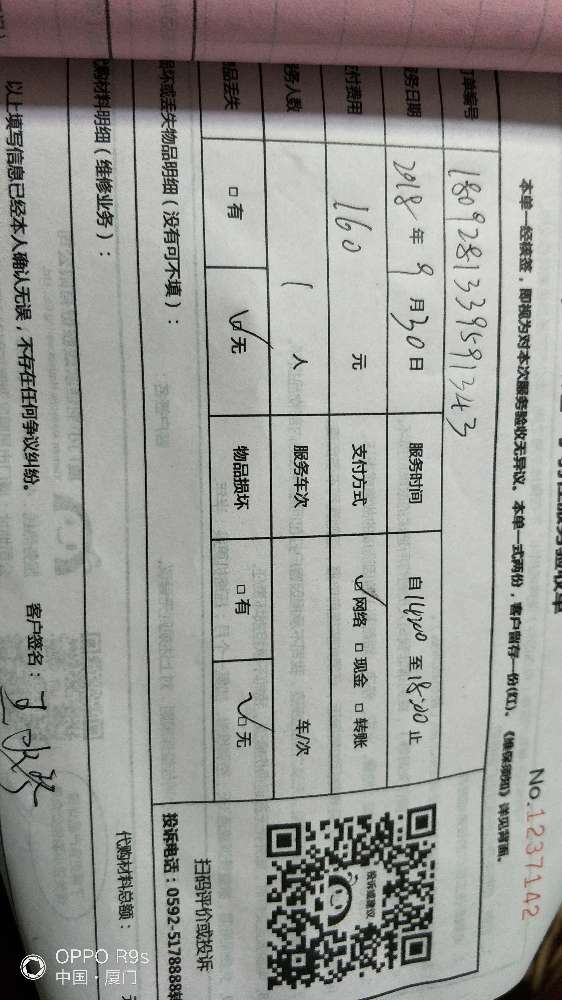 服务验收单
No.1237142
本单一经接签，即视为对本次服务验收无异议。本单一式两份，客户留存一份(红)。《维保须知》详见背面。
订单编号 1809281339591343
服务日期 2018年9月30日 服务时间 自14:00至18:00止
支付费用 160 元 支付方式 ☑网络 □现金 □转账
服务人数 1 人 服务车次 车/次
物品丢失 □有 ☑无 物品损坏 □有 ☑无
损坏或丢失物品明细（没有可不填）：
投诉或建议
扫码评价或投诉
投诉电话：0592-5178888转
代购材料明细（维修业务）：
代购材料总额： 元
以上填写信息已经本人确认无误，不存在任何争议纠纷。 客户签名：
OPPO R9s
中国·厦门